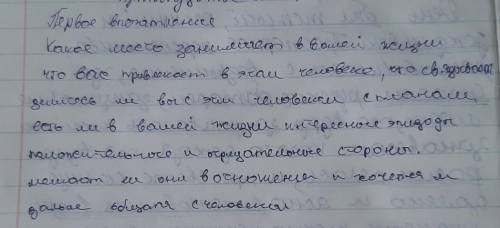 Первое впечатление
Какое место занимает в вашей жизни
что вас привлекает в этом человеке, что св
ли вы с эти человеком с планам,
есть ли в вашей жизни интересные эпизоды
положительные и отрицательные стороны.
мешает ли они в отношения и хочется ли
дальше общатя с человеком